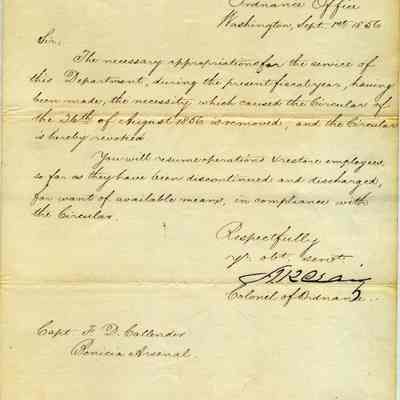 Ordnance Office
Washington, Sept. 1st 1856
Sir,
The necessary appropriations for the service of
this Department, during the present fiscal year, having
been made, the necessity which caused the Circular of
the 26th of August 1856 is removed, and the Circular
is hereby revoked.
You will resume operations & restore employees,
so far as they have been discontinued and discharged,
for want of available means, in compliance with
the Circular.
Respectfully
yr. obt. servt.
H K Craig
Colonel of Ordnance.
Capt. F. D. Callender
Benicia Arsenal.